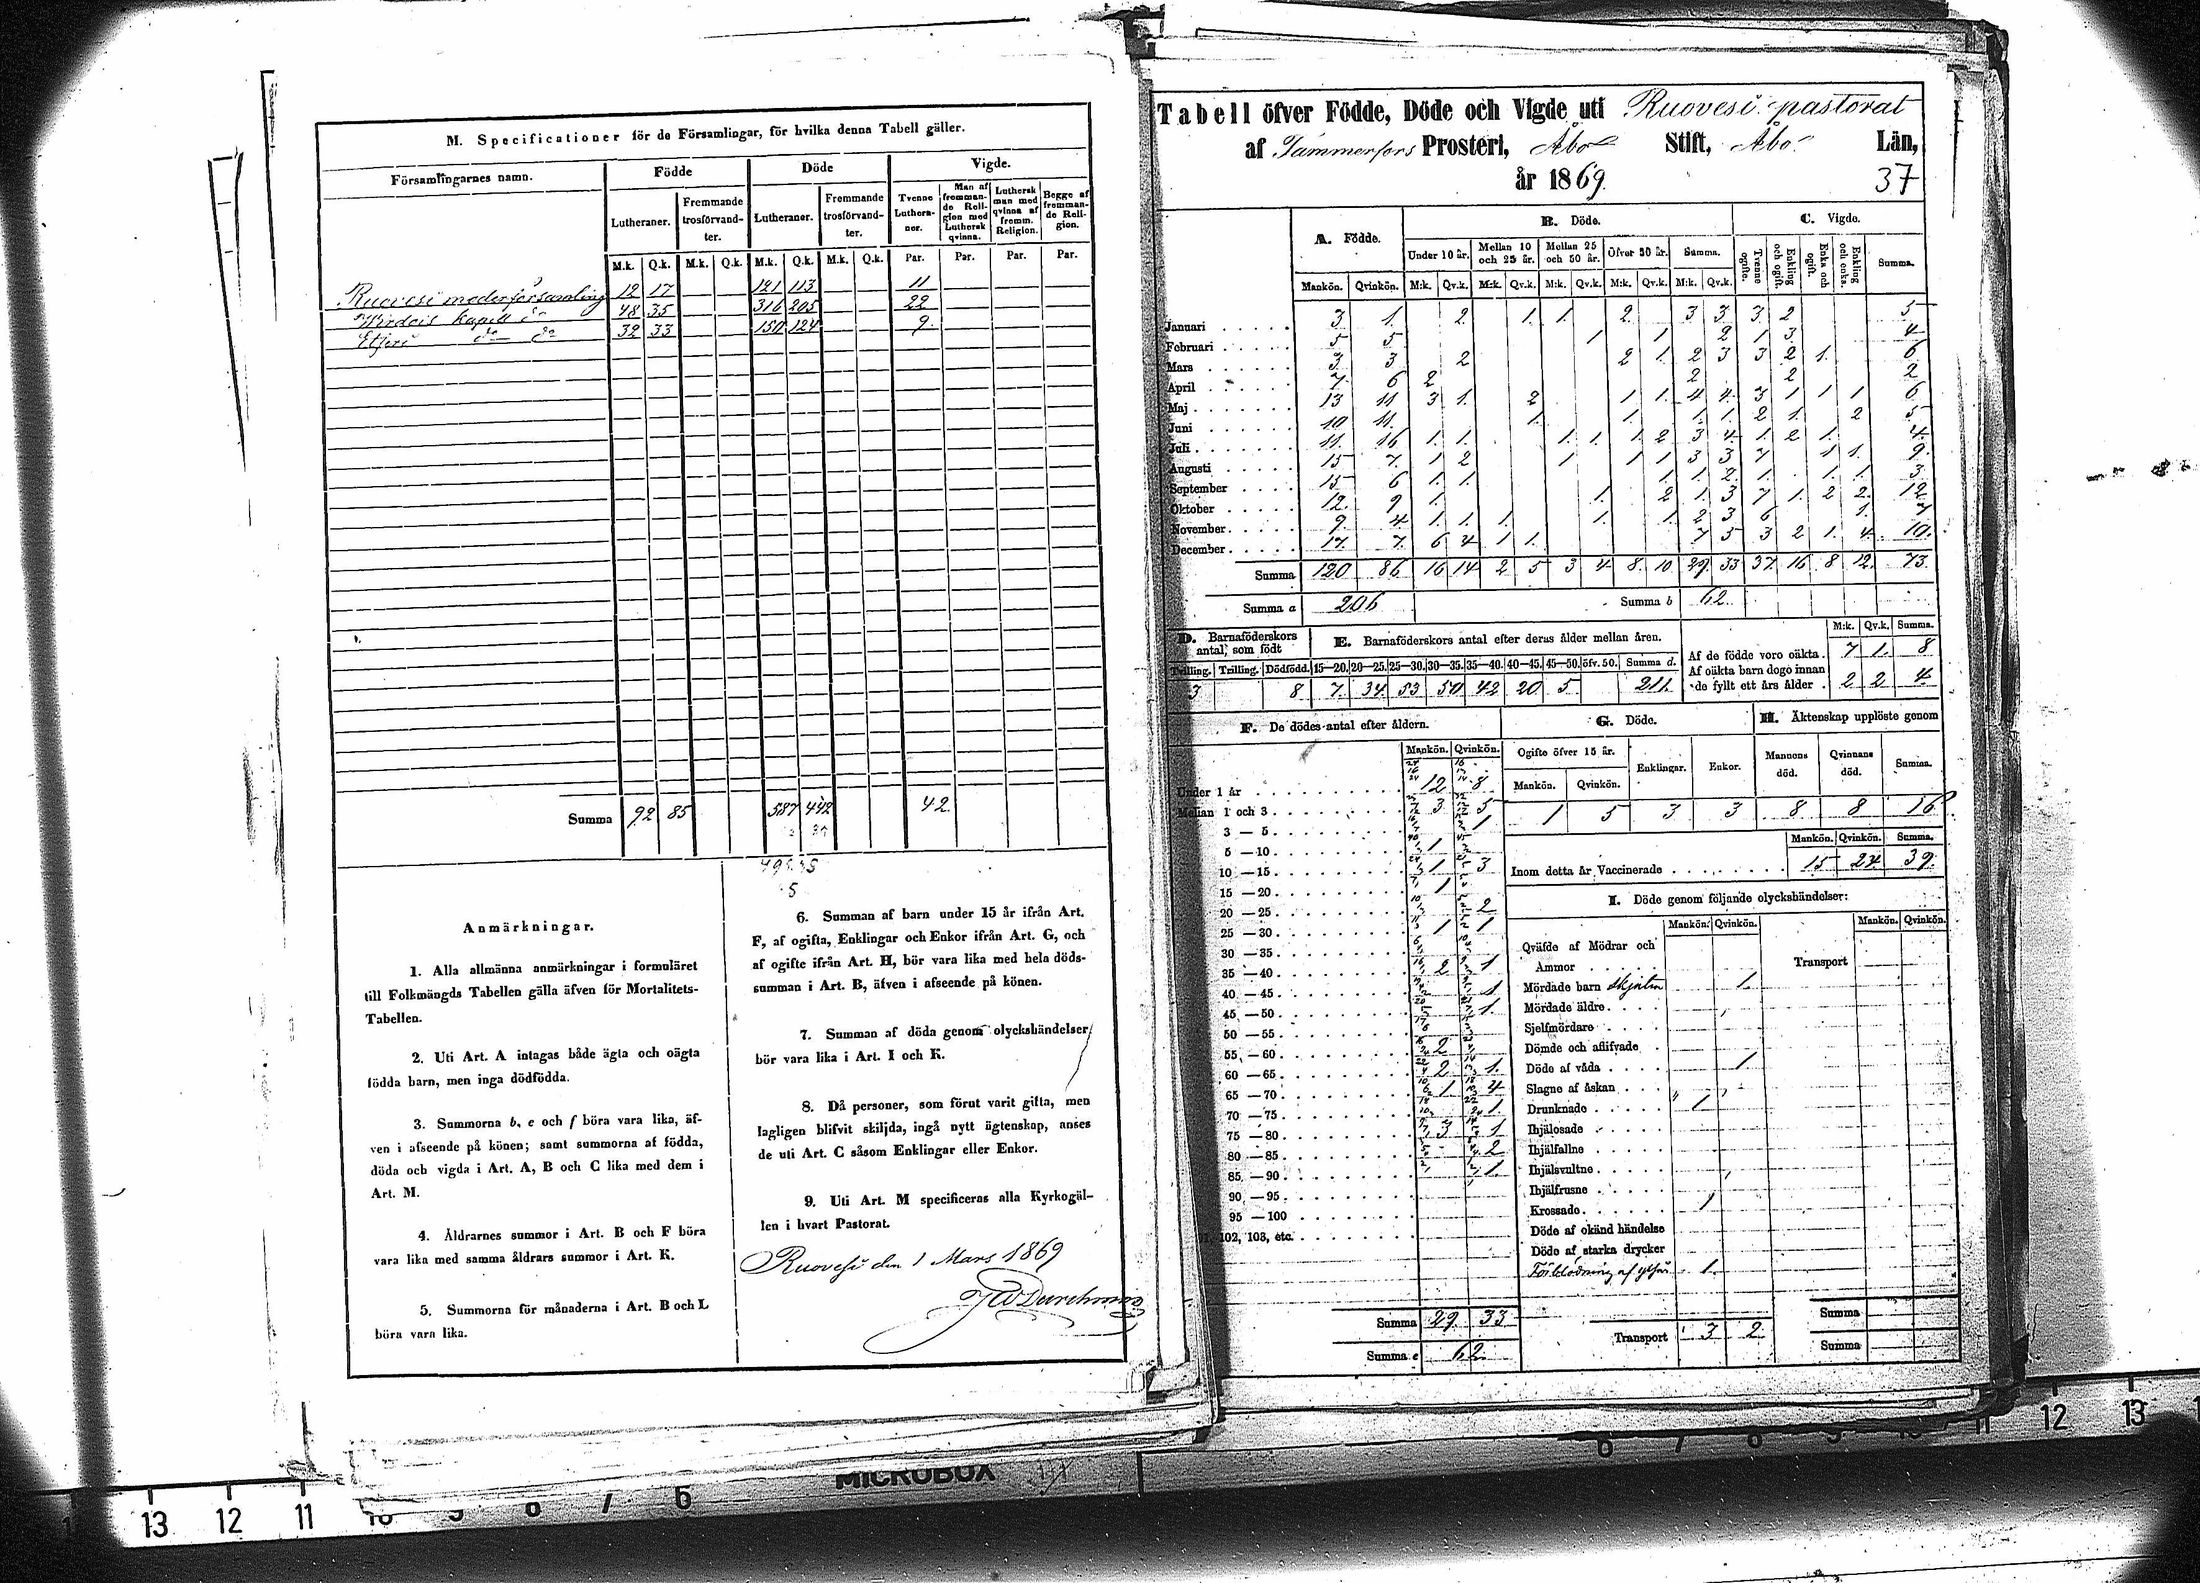 M. Specificationer för de Församlingar, för hvilka denna Tabell gäller.
Församlingarnes namn. Födde Döde Vigde.
Lutheraner. Fremmande trosförvandter. Lutheraner. Fremmande trosförvandter. Tvenne Lutheraner. Man af fremmande Religion med Luthersk qvinna. Luthersk man med qvinna af fremm. Religion. Begge af fremmande Religion.
M.k. Q.k. M.k. Q.k. M.k. Q.k. M.k. Q.k. Par. Par. Par. Par.
Ruovesi moderförsamling 12 17 121 113 11
Wirdois Kapell do 48 35 316 205 22
Etseri do do 32 33 150 124 9
Summa 92 85 587 442 42
Anmärkningar.
1. Alla allmänna anmärkningar i formuläret
till Folkmängds Tabellen gälla äfven för Mortalitets-
Tabellen.
2. Uti Art. A intagas både ägta och oägta
födda barn, men inga dödfödda.
3. Summorna b, e och f böra vara lika, äf-
ven i afseende på könen; samt summorna af födda,
döda och vigda i Art. A, B och C lika med dem i
Art. M.
4. Åldrarnes summor i Art. B och F böra
vara lika med samma åldrars summor i Art. K.
5. Summorna för månaderna i Art. B och L
böra vara lika.
6. Summan af barn under 15 år ifrån Art.
F, af ogifta, Enklingar och Enkor ifrån Art. G, och
af ogifte ifrån Art. H, bör vara lika med hela döds-
summan i Art. B, äfven i afseende på könen.
7. Summan af döda genom olyckshändelser
bör vara lika i Art. I och K.
8. Då personer, som förut varit gifta, men
lagligen blifvit skiljda, ingå nytt ägtenskap, anses
de uti Art. C såsom Enklingar eller Enkor.
9. Uti Art. M specificeras alla Kyrkogäl-
len i hvart Pastorat.
Ruovesi den 1 Mars 1869
Tabell öfver Födde, Döde och Vigde uti Ruovesi pastorat
af Tammerfors Prosteri, Åbo Stift, Åbo Län,
år 1869.
37
A. Födde. B. Döde. C. Vigde.
Under 10 år. Mellan 10 och 25 år. Mellan 25 och 50 år. Öfver 50 år. Summa. Tvenne ogifte. Enkling och ogift. Enka och ogift. Enkling och enka. Summa.
Mankön. Qvinkön. M:k. Qv.k. M:k. Qv.k. M:k. Qv.k. M:k. Qv.k. M:k. Qv.k.
Januari 3 1 2 1 1 2 3 3 3 2 5
Februari 5 5 1 1 2 1 3 4
Mars 3 3 2 2 1 2 3 3 2 1 6
April 7 6 2 2 2 2
Maj 13 11 3 1 2 1 1 4 4 3 1 1 1 6
Juni 10 11 1 1 1 1 2 1 2 5
Juli 11 16 1 1 1 1 1 2 3 4 1 2 1 4
Augusti 15 7 1 2 1 1 1 3 3 7 1 1 9
September 15 6 1 1 1 1 2 1 1 1 3
Oktober 12 9 1 1 2 1 3 7 1 2 2 12
November 9 4 1 1 1 1 1 2 3 6 1 7
December 17 7 6 4 1 1 7 5 3 2 1 4 10
Summa 120 86 16 14 2 5 3 4 8 10 29 33 37 16 8 12 73
Summa a 206 Summa b 62
D. Barnaföderskors antal, som födt
E. Barnaföderskors antal efter deras ålder mellan åren.
M:k. Qv.k. Summa.
Tvilling. Trilling. Dödfödd. 15—20. 20—25. 25—30. 30—35. 35—40. 40—45. 45—50. öfv. 50. Summa d.
3 8 7 34 53 50 42 20 5 211
Af de födde voro oäkta. 7 1 8
Af oäkta barn dogo innan
de fyllt ett års ålder 2 2 4
F. De dödes antal efter åldern.
Mankön. Qvinkön.
Under 1 år 12 8
Mellan 1 och 3 3 5
3 — 5 1
5 — 10 1
10 — 15 1 3
15 — 20 1
20 — 25 2
25 — 30 1 1
30 — 35
35 — 40 2 1
40 — 45 1
45 — 50 1
50 — 55
55 — 60 2
60 — 65 2 1
65 — 70 1 4
70 — 75 1
75 — 80 3 1
80 — 85 2
85 — 90 1
90 — 95
95 — 100
102, 103, etc.
Summa 29 33
Summa e 62
G. Döde.
Ogifte öfver 15 år. Enklingar. Enkor.
Mankön. Qvinkön.
1 5 3 3
H. Äktenskap upplöste genom
Mannens död. Qvinnans död. Summa.
8 8 16
Mankön. Qvinkön. Summa.
Inom detta år Vaccinerade 15 24 39
I. Döde genom följande olyckshändelser:
Mankön. Qvinkön. Mankön. Qvinkön.
Qväfde af Mödrar och
Ammor
Transport
Mördade barn 1
Mördade äldre
Sjelfmördare
Dömde och aflifvade
Döde af våda 1
Slagne af åskan
Drunknade 1
Ihjälosade
Ihjälfallne
Ihjälsvultne
Ihjälfrusne
Krossade 1
Döde af okänd händelse
Döde af starka drycker
Förblodning af 1
Transport 3 2
Summa
Summa
MICROBOX
13 12 11 10 9 8 7 6
6 7 8 9 10 11 12 13